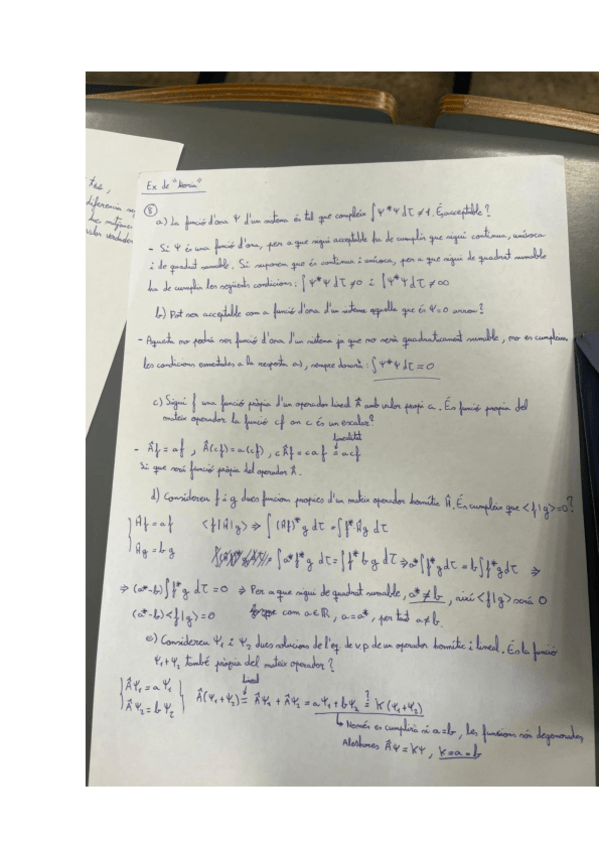 tes,
diferencia
Ex de "teoria"
8
a) La funció d'ona Ψ d'un sistema és tal que compleix ∫Ψ*Ψ dτ ≠ 1. És acceptable?
- Si Ψ és una funció d'ona, per a que sigui acceptable ha de complir que sigui contínua, unívoca
i de quadrat sumable. Si suposem que és contínua i unívoca, per a que sigui de quadrat sumable
ha de complir les següents condicions: ∫Ψ*Ψ dτ ≠ 0 i ∫Ψ*Ψ dτ ≠ ∞
b) Pot ser acceptable com a funció d'ona d'un sistema aquella que és Ψ=0 arreu?
- Aquesta no podrà ser funció d'ona d'un sistema ja que no serà quadraticament sumable, no es compleixen
les condicions esmentades a la resposta a), sempre donarà: ∫Ψ*Ψ dτ = 0
c) Sigui f una funció pròpia d'un operador lineal Â amb valor propi a. És funció propia del
mateix operador la funció cf on c és un escalar?
linealitat
- Âf = af , Â(cf) = a(cf) , cÂf = caf = acf
Si que serà funció pròpia del operador Â.
d) Considerem f i g dues funcions propies d'un mateix operador hermític Â. Es compleix que <f|g>=0?
Âf = af <f|A|g> ⇒ ∫(Âf)* g dτ = ∫f* Âg dτ
Âg = bg ∫a*f*g dτ = ∫f* b g dτ ⇒ a*∫f*g dτ = b∫f*g dτ ⇒
⇒ (a*-b)∫f*g dτ = 0 ⇒ Per a que sigui de quadrat sumable, a* ≠ b, <f|g> serà 0
(a*-b)<f|g> = 0 com a∈ℝ, a=a*, per tant a≠b.
e) Considerem Ψ₁ i Ψ₂ dues solucions de l'eq. de v.p de un operador hermític i lineal. És la funció
Ψ₁+Ψ₂ també pròpia del mateix operador?
lineal
ÂΨ₁ = aΨ₁ Â(Ψ₁+Ψ₂) = ÂΨ₁ + ÂΨ₂ = aΨ₁ + bΨ₂ =? K(Ψ₁+Ψ₂)
ÂΨ₂ = bΨ₂
↳ Només es complirà si a=b, les funcions són degenerades
Aleshores ÂΨ = KΨ, K=a=b